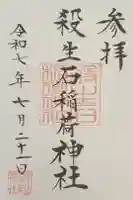 参拝
殺生石稲荷神社
令和七年七月二十一日